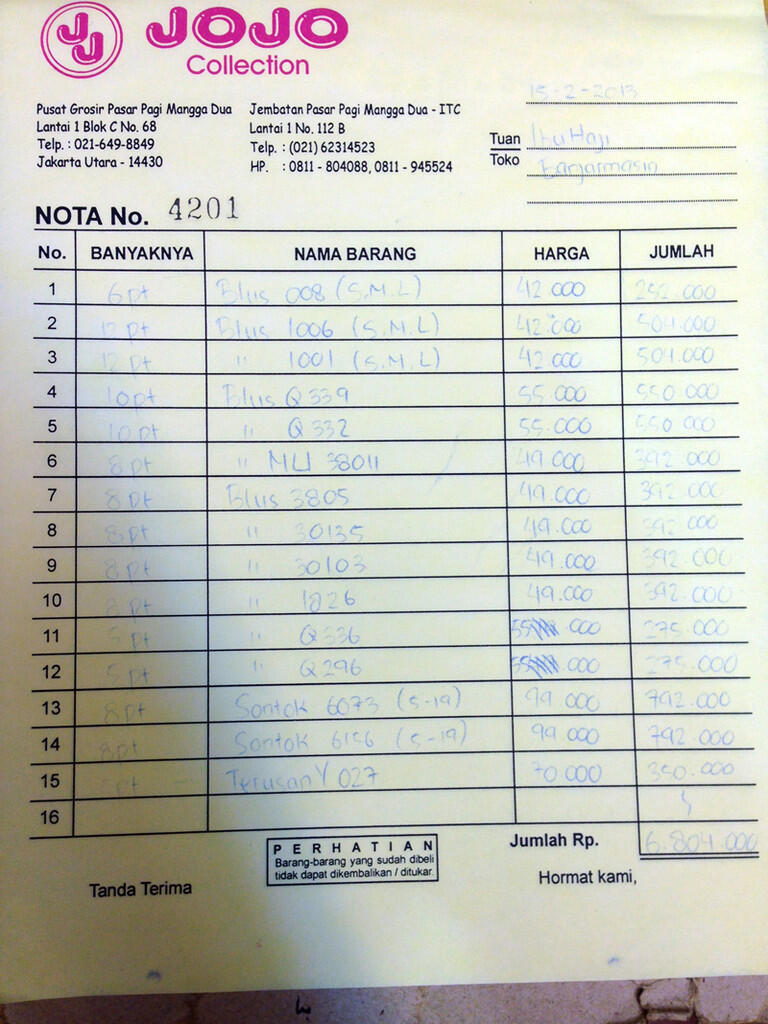 JJ JOJO
Collection
Pusat Grosir Pasar Pagi Mangga Dua
Lantai 1 Blok C No. 68
Telp. : 021-649-8849
Jakarta Utara - 14430
Jembatan Pasar Pagi Mangga Dua - ITC
Lantai 1 No. 112 B
Telp. : (021) 62314523
HP. : 0811 - 804088, 0811 - 945524
15-2-2013
Tuan Ibu Haji
Toko Banjarmasin
NOTA No. 4201
No. BANYAKNYA NAMA BARANG HARGA JUMLAH
1 6pt Blus 008 (S.M.L) 42.000 252.000
2 12 pt Blus 1006 (S.M.L) 42.000 504.000
3 12 pt " 1001 (S.M.L) 42.000 504.000
4 10pt Blus Q 339 55.000 550.000
5 10pt " Q 332 55.000 550.000
6 8pt " MU 38011 49.000 392.000
7 8pt Blus 3805 49.000 392.000
8 8pt " 30135 49.000 392.000
9 8pt " 30103 49.000 392.000
10 8pt " 1826 49.000 392.000
11 5pt " Q336 55.000 275.000
12 5pt " Q296 55.000 275.000
13 8pt Sontok 6073 (S-19) 99.000 792.000
14 8pt Sontok (S-19) 99.000 792.000
15 Terusan Y 027 70.000 350.000
16
PERHATIAN
Barang-barang yang sudah dibeli
tidak dapat dikembalikan / ditukar.
Jumlah Rp. 6.804.000
Tanda Terima
Hormat kami,